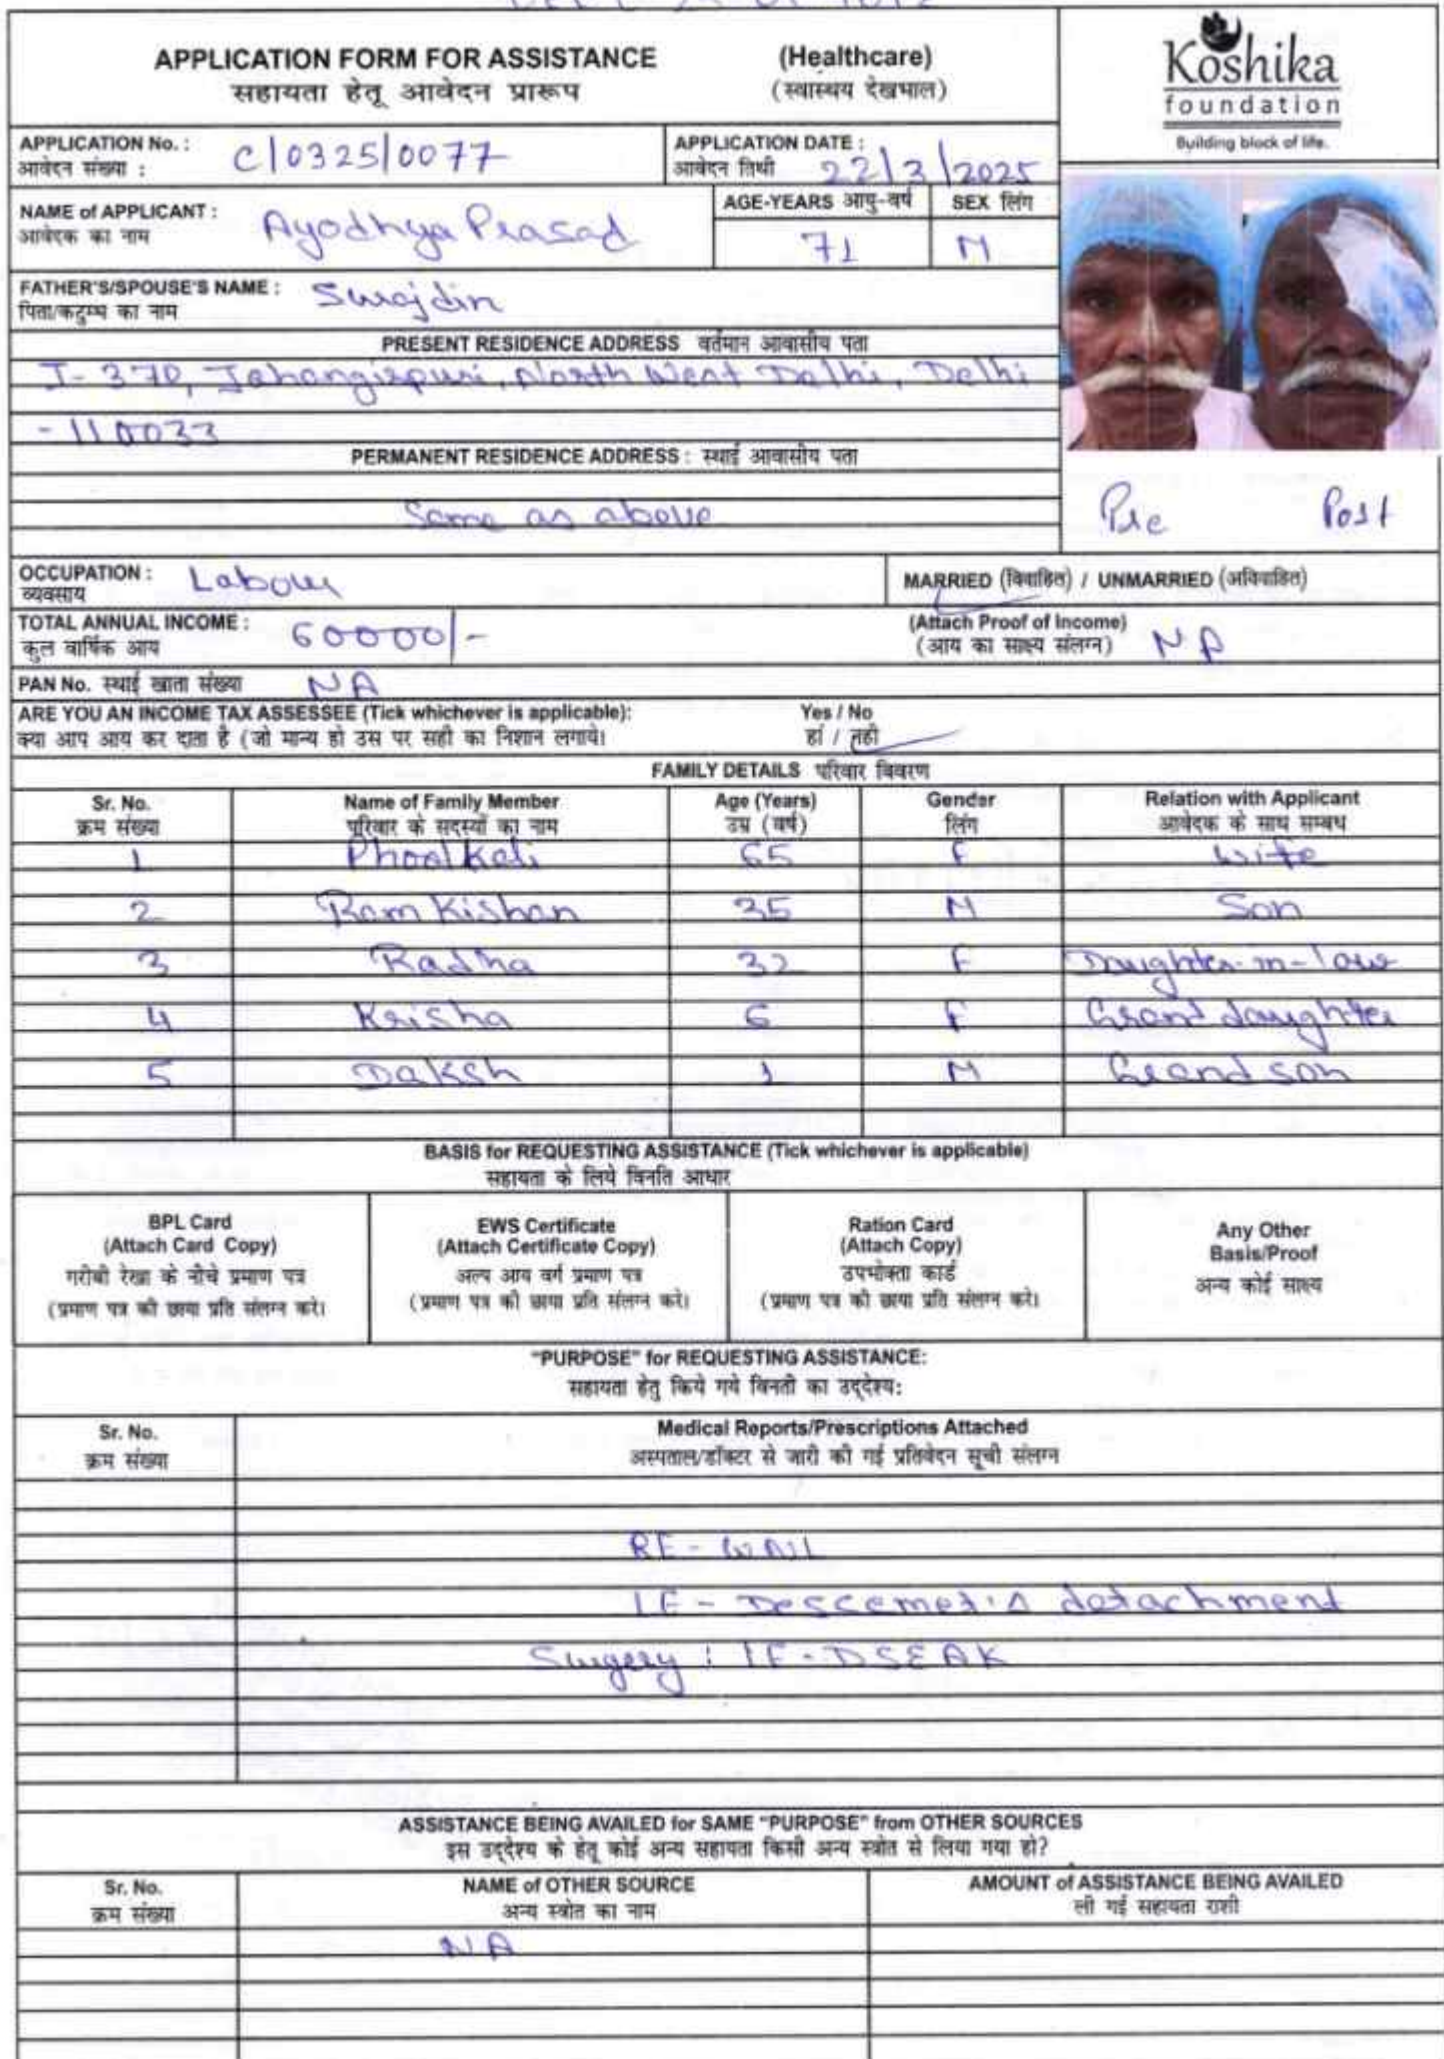 APPLICATION FORM FOR ASSISTANCE (Healthcare)
सहायता हेतू आवेदन प्रारूप (स्वास्थय देखभाल)
Koshika
foundation
Building block of life.
APPLICATION No. : C/0325/0077
आवेदन संख्या :
APPLICATION DATE :
आवेदन तिथी 22/3/2025
NAME of APPLICANT : Ayodhya Prasad
आवेदक का नाम
AGE-YEARS आयु-वर्ष SEX लिंग
71 M
FATHER'S/SPOUSE'S NAME : Surajdin
पिता/कटुम्ब का नाम
PRESENT RESIDENCE ADDRESS वर्तमान आवासीय पता
J-370, Jahangirpuri, North West Delhi, Delhi
-110033
PERMANENT RESIDENCE ADDRESS : स्थाई आवासीय पता
Same as above
Pre Post
OCCUPATION : Labour
व्यवसाय
MARRIED (विवाहित) / UNMARRIED (अविवाहित)
TOTAL ANNUAL INCOME : 60000/-
कुल वार्षिक आय
(Attach Proof of Income)
(आय का साक्ष्य संलग्न) NA
PAN No. स्थाई खाता संख्या NA
ARE YOU AN INCOME TAX ASSESSEE (Tick whichever is applicable): Yes / No
क्या आप आय कर दाता है (जो मान्य हो उस पर सही का निशान लगाये। हां / नही
FAMILY DETAILS परिवार विवरण
Sr. No. Name of Family Member Age (Years) Gender Relation with Applicant
क्रम संख्या परिवार के सदस्यों का नाम उम्र (वर्ष) लिंग आवेदक के साथ सम्बध
1 Phoolkali 65 F wife
2 Ram Kishan 35 M Son
3 Radha 32 F Daughter-in-law
4 Krisha 6 F Grand daughter
5 Daksh 1 M Grand son
BASIS for REQUESTING ASSISTANCE (Tick whichever is applicable)
सहायता के लिये विनति आधार
BPL Card
(Attach Card Copy)
गरीबी रेखा के नीचे प्रमाण पत्र
(प्रमाण पत्र की छाया प्रति संलग्न करे।
EWS Certificate
(Attach Certificate Copy)
अल्प आय वर्ग प्रमाण पत्र
(प्रमाण पत्र की छाया प्रति संलग्न करे।
Ration Card
(Attach Copy)
उपभोक्ता कार्ड
(प्रमाण पत्र की छाया प्रति संलग्न करे।
Any Other
Basis/Proof
अन्य कोई साक्ष्य
"PURPOSE" for REQUESTING ASSISTANCE:
सहायता हेतु किये गये विनती का उद्देश्य:
Sr. No. Medical Reports/Prescriptions Attached
क्रम संख्या अस्पताल/डॉक्टर से जारी की गई प्रतिवेदन सूची संलग्न
RE - WNL
LE - Descemet's detachment
Surgery : LE - DSEAK
ASSISTANCE BEING AVAILED for SAME "PURPOSE" from OTHER SOURCES
इस उद्देश्य के हेतू कोई अन्य सहायता किसी अन्य स्त्रोत से लिया गया हो?
Sr. No. NAME of OTHER SOURCE AMOUNT of ASSISTANCE BEING AVAILED
क्रम संख्या अन्य स्त्रोत का नाम ली गई सहायता राशी
NA